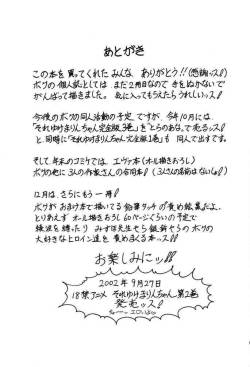 あとがき
この本を買ってくれたみんな ありがとう!!(感謝ッス!)
ボクの個人誌としては まだ2冊目なので 手をぬかないで
がんばって描きました。気に入ってもらえたらうれしいッス!
今後のボクの同人活動の予定 ですが、今年10月には
「それゆけまりんちゃん完全版3巻」を「とらのあな」で売るッス!
と同時に「それゆけまりんちゃん完全版1巻」も 同人で出すです。
そして、年末のコミケでは、エヴァ本(オール描きおろし)
ボクの他に 3人の作家さんの合同本!(3人さんの名前はないしょ!)
12月は、さらにもう一冊!
ボクがおまけ本で描いてる 鉛筆タッチの責め絵集だよ。
とりあえず オール描きおろし 60ページくらいの予定で
綾波を縛ったり みずほ先生もち 鈴ちらのボクの
大好きなヒロイン達を 責めまくる本ッス!
お楽しみにッ!!
2002年9月27日
18禁アニメ それゆけまりんちゃん第2巻
発売ッス!